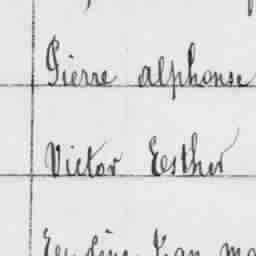 Pierre alphonse
Victor Esther
Jean